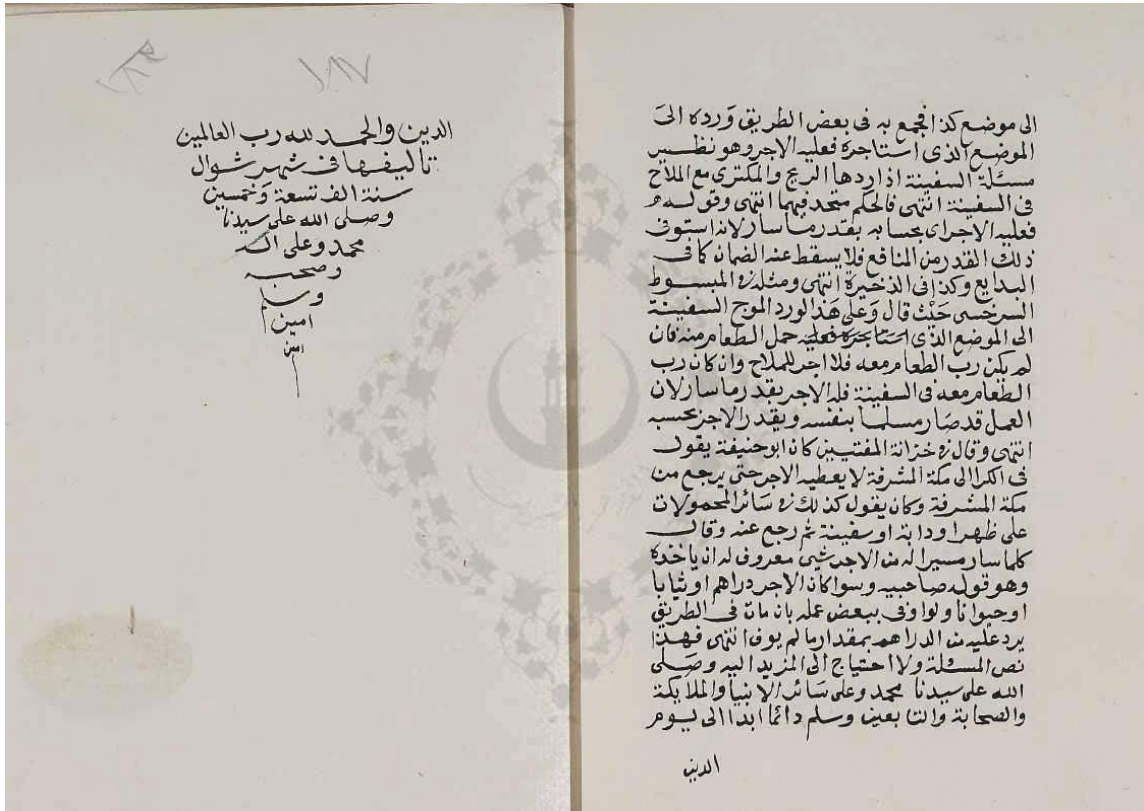 الى موضع كذا فجمع به فى بعض الطريق ورده الى
الموضع الذى استاجره فعليه الاجر وهو نظير
مسئلة السفينة اذا ردها الريح والمكترى مع الملاح
فى السفينة انتهى فالحكم متحد فيهما انتهى وقوله
فعليه الاجر اى بحسابه بقدر ما سار لانه استوفى
ذلك القدر من المنافع فلا يسقط عنه الضمان كما فى
البدايع وكذا فى الذخيرة انتهى ومثله فى المبسوط
السرخسى حيث قال وعلى هذا لو رد الموج السفينة
الى الموضع الذى فعليه حمل الطعام منه فان
لم يكن رب الطعام معه فلا اجر للملاح وان كان رب
الطعام معه فى السفينة فله الاجر بقدر ما سار لان
العمل قد صار مسلما بنفسه ويقدر الاجر بحسبه
انتهى وقال فى خزانة المفتيين كان ابو حنيفة يقول
فى الكرا الى مكة المشرفة لا يعطيه الاجر حتى يرجع من
مكة المشرفة وكان يقول كذلك فى سائر المحمولات
على ظهر او دابة او سفينة ثم رجع عنه وقال
كلما سار مسيرا له من الاجر شيئ معروف له ان ياخذه
وهو قوله صاحبيه وسوا كان الاجر دراهم او ثيابا
او حيوانا ولو اوفى ببعض عمله بان مات فى الطريق
يرد عليه من الدراهم بمقدار ما لم يوف انتهى فهذا
نص المسئلة ولا احتياج الى المزيد اليه وصلى
الله على سيدنا محمد وعلى سائر الانبيا والملايكة
والصحابة والتابعين وسلم دائما ابدا الى يوم
الدين
الدين والحمد لله رب العالمين
تاليفها فى شهر شوال
سنة الف تسعة وخمسين
وصلى الله على سيدنا
محمد وعلى اله
وصحبه
وسلم
امين
امين